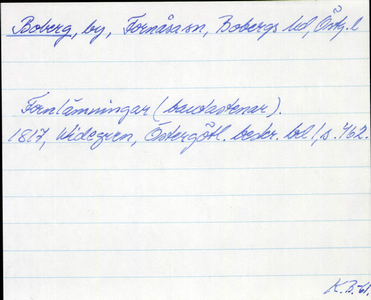 Boberg, by, Fornåsa sn, Bobergs hd, Östg. l
Fornlämningar (bautastenar).
1817, Widegren, Östergötl. beskr. bd 1, s. 462.
K.B.-61.